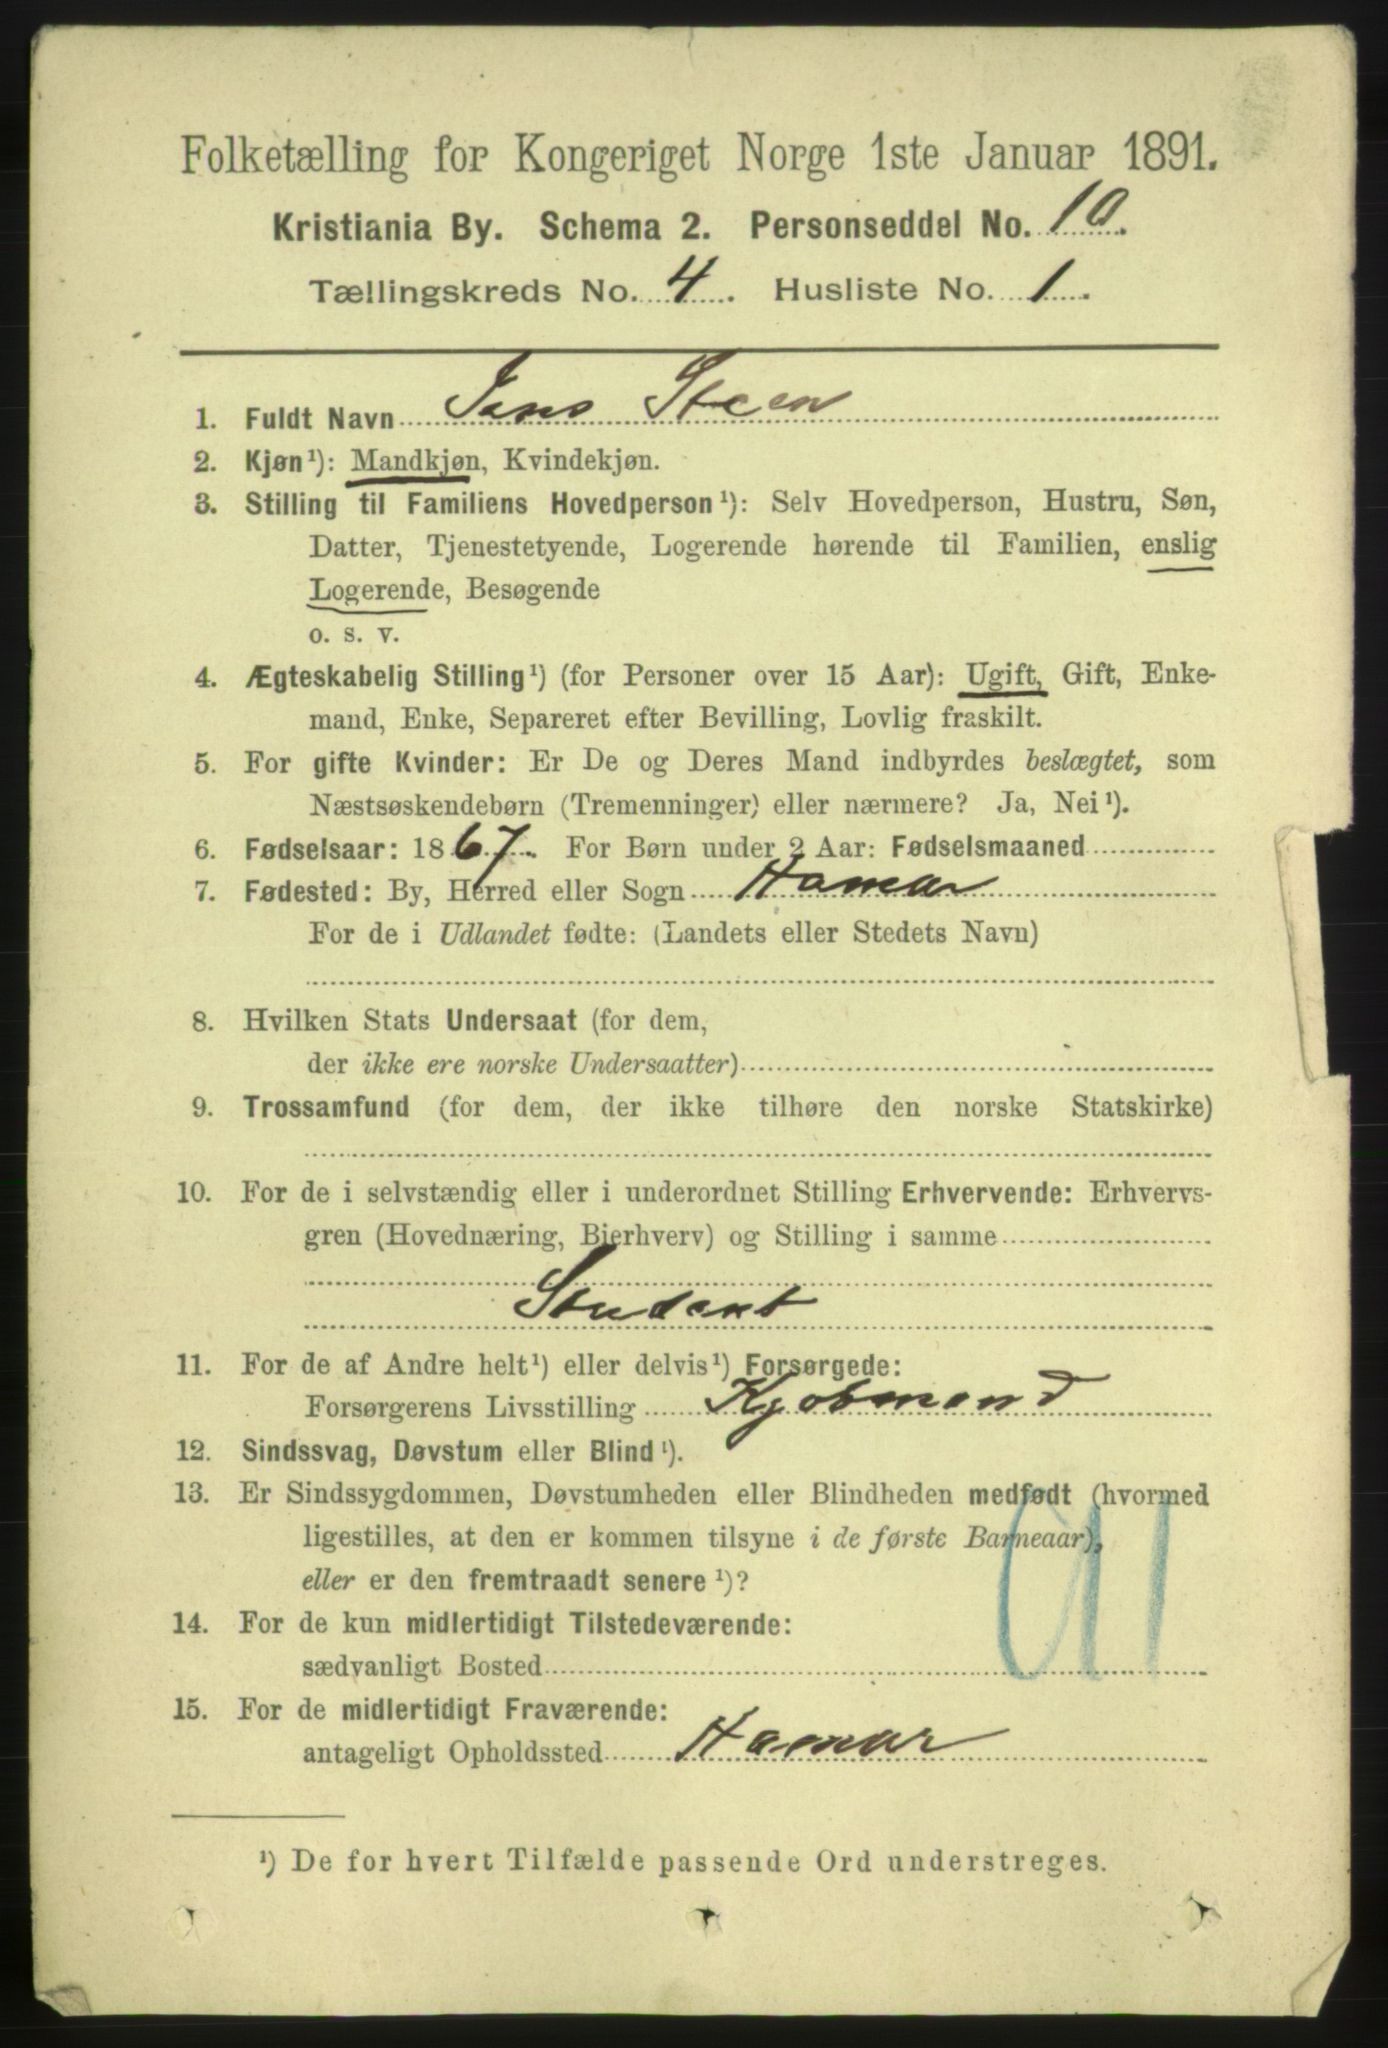 Folketælling for Kongeriget Norge 1ste Januar 1891.
Kristiania By. Schema 2. Personseddel No. 10.
Tællingskreds No. 4. Husliste No. 1.
1. Fuldt Navn Jens Steen
2. Kjøn¹): Mandkjøn, Kvindekjøn.
3. Stilling til Familiens Hovedperson¹): Selv Hovedperson, Hustru, Søn,
Datter, Tjenestetyende, Logerende hørende til Familien, enslig
Logerende, Besøgende
o. s. v.
4. Ægteskabelig Stilling¹) (for Personer over 15 Aar): Ugift, Gift, Enke-
mand, Enke, Separeret efter Bevilling, Lovlig fraskilt.
5. For gifte Kvinder: Er De og Deres Mand indbyrdes beslægtet, som
Næstsøskendebørn (Tremenninger) eller nærmere? Ja, Nei¹).
6. Fødselsaar: 1867. For Børn under 2 Aar: Fødselsmaaned
7. Fødested: By, Herred eller Sogn Hamar
For de i Udlandet fødte: (Landets eller Stedets Navn)
8. Hvilken Stats Undersaat (for dem,
der ikke ere norske Undersaatter)
9. Trossamfund (for dem, der ikke tilhøre den norske Statskirke)
10. For de i selvstændig eller i underordnet Stilling Erhvervende: Erhvervs-
gren (Hovednæring, Bierhverv) og Stilling i samme
Student
11. For de af Andre helt¹) eller delvis¹) Forsørgede:
Forsørgerens Livsstilling Kjøbmand
12. Sindssvag, Døvstum eller Blind¹).
13. Er Sindssygdommen, Døvstumheden eller Blindheden medfødt (hvormed
ligestilles, at den er kommen tilsyne i de første Barneaar),
eller er den fremtraadt senere¹)?
14. For de kun midlertidigt Tilstedeværende:
sædvanligt Bosted
15. For de midlertidigt Fraværende:
antageligt Opholdssted Hamar
¹) De for hvert Tilfælde passende Ord understreges.